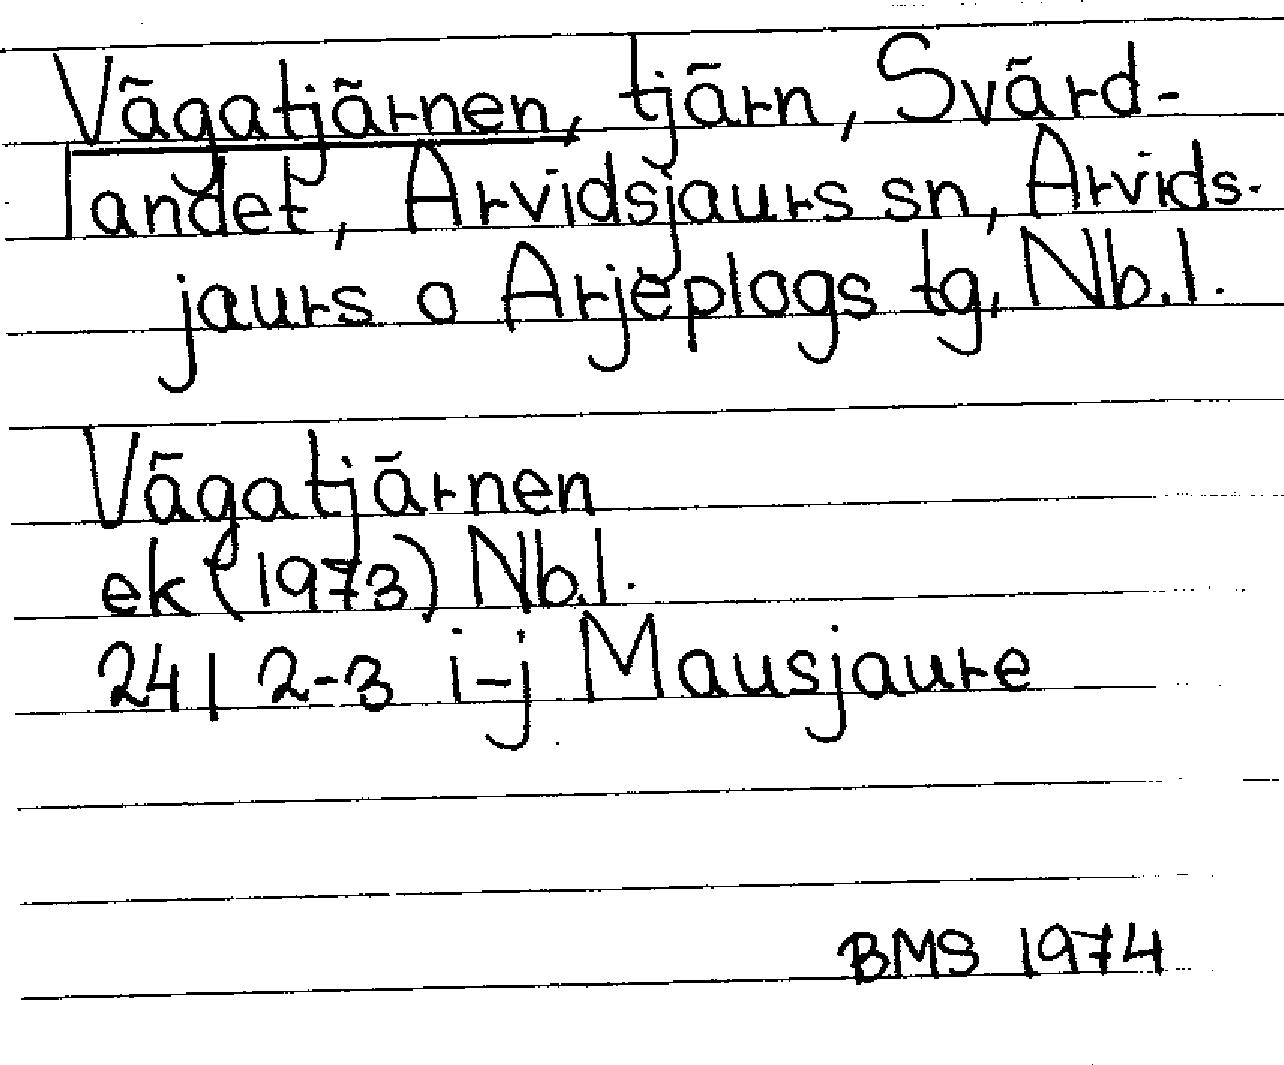 Vägatjärnen, tjärn, Svärd-
landet, Arvidsjaurs sn, Arvids-
jaurs o Arjeplogs tg, Nb.l.
Vägatjärnen
ek (1973) Nb.l.
24I 2-3 i-j Mausjaure
BMS 1974